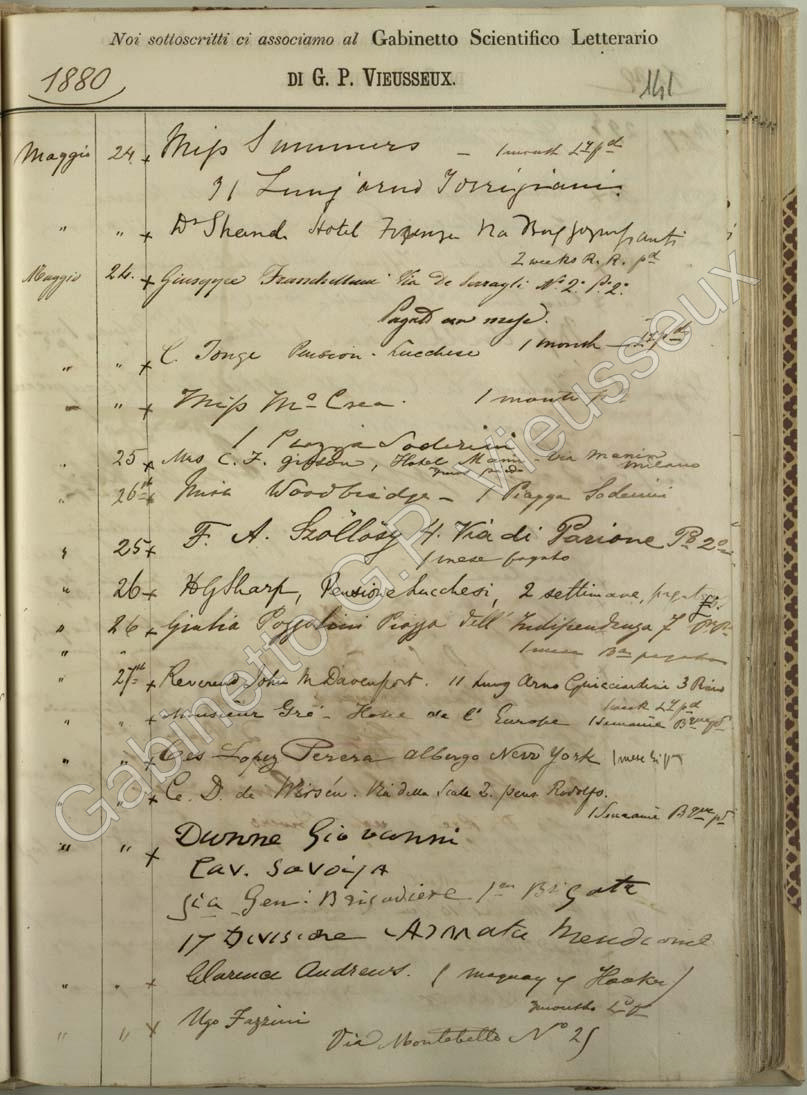 Noi sottoscritti ci associamo al Gabinetto Scientifico Letterario
DI G. P. VIEUSSEUX.
1880
141
Maggio 24. x Miss Summers – 1 month pd
31 Lung'arno Torrigiani
" " x Dr Shand Hotel Firenze
2 weeks R. R. pd
Maggio 24. x Giuseppe Via de Serragli No 2. P. 2o
Pagato un mese.
" " x C. Tonge Pension Lucchese 1 month pd
" " x Miss Mc Crea. 1 month
1 Piazza Soderini
" 25 x Mrs C. F. Gibson, Hotel Via Manin Milano
" 26 x Miss Woodbridge – 1 Piazza Soderini
" 25 x F. A. Szöllösy 4. Via di Parione Po 2o
1 mese pagato
" 26 x H G Sharp, Pensione Lucchesi, 2 settimane,
" 26 x Giulia Pozzolini Piazza dell' Indipendenza 7
" " 1 mese
" 27 x Reverend John M Davenport. 11 Lung Arno Guicciardini 3 Piano
1 week pd
" " x Monsieur Gré – Hotel de l'Europe 1 Semaine pd
" " x Lopez Perera albergo New York 1 mese
" " x C. D. de Wirsén. Via della Scala 2. pens Rodolfo.
1 Semaine pd
" " x Duonne Giovanni
Cav. Savoja
già Gen: Brigadiere Brigata
17 Divisione Armata
" " x Clarence Andrews. (Maquay & Hooker)
3 months
" " x Ugo Fazzini
Via Montebello No 25
Gabinetto G.P. Vieusseux